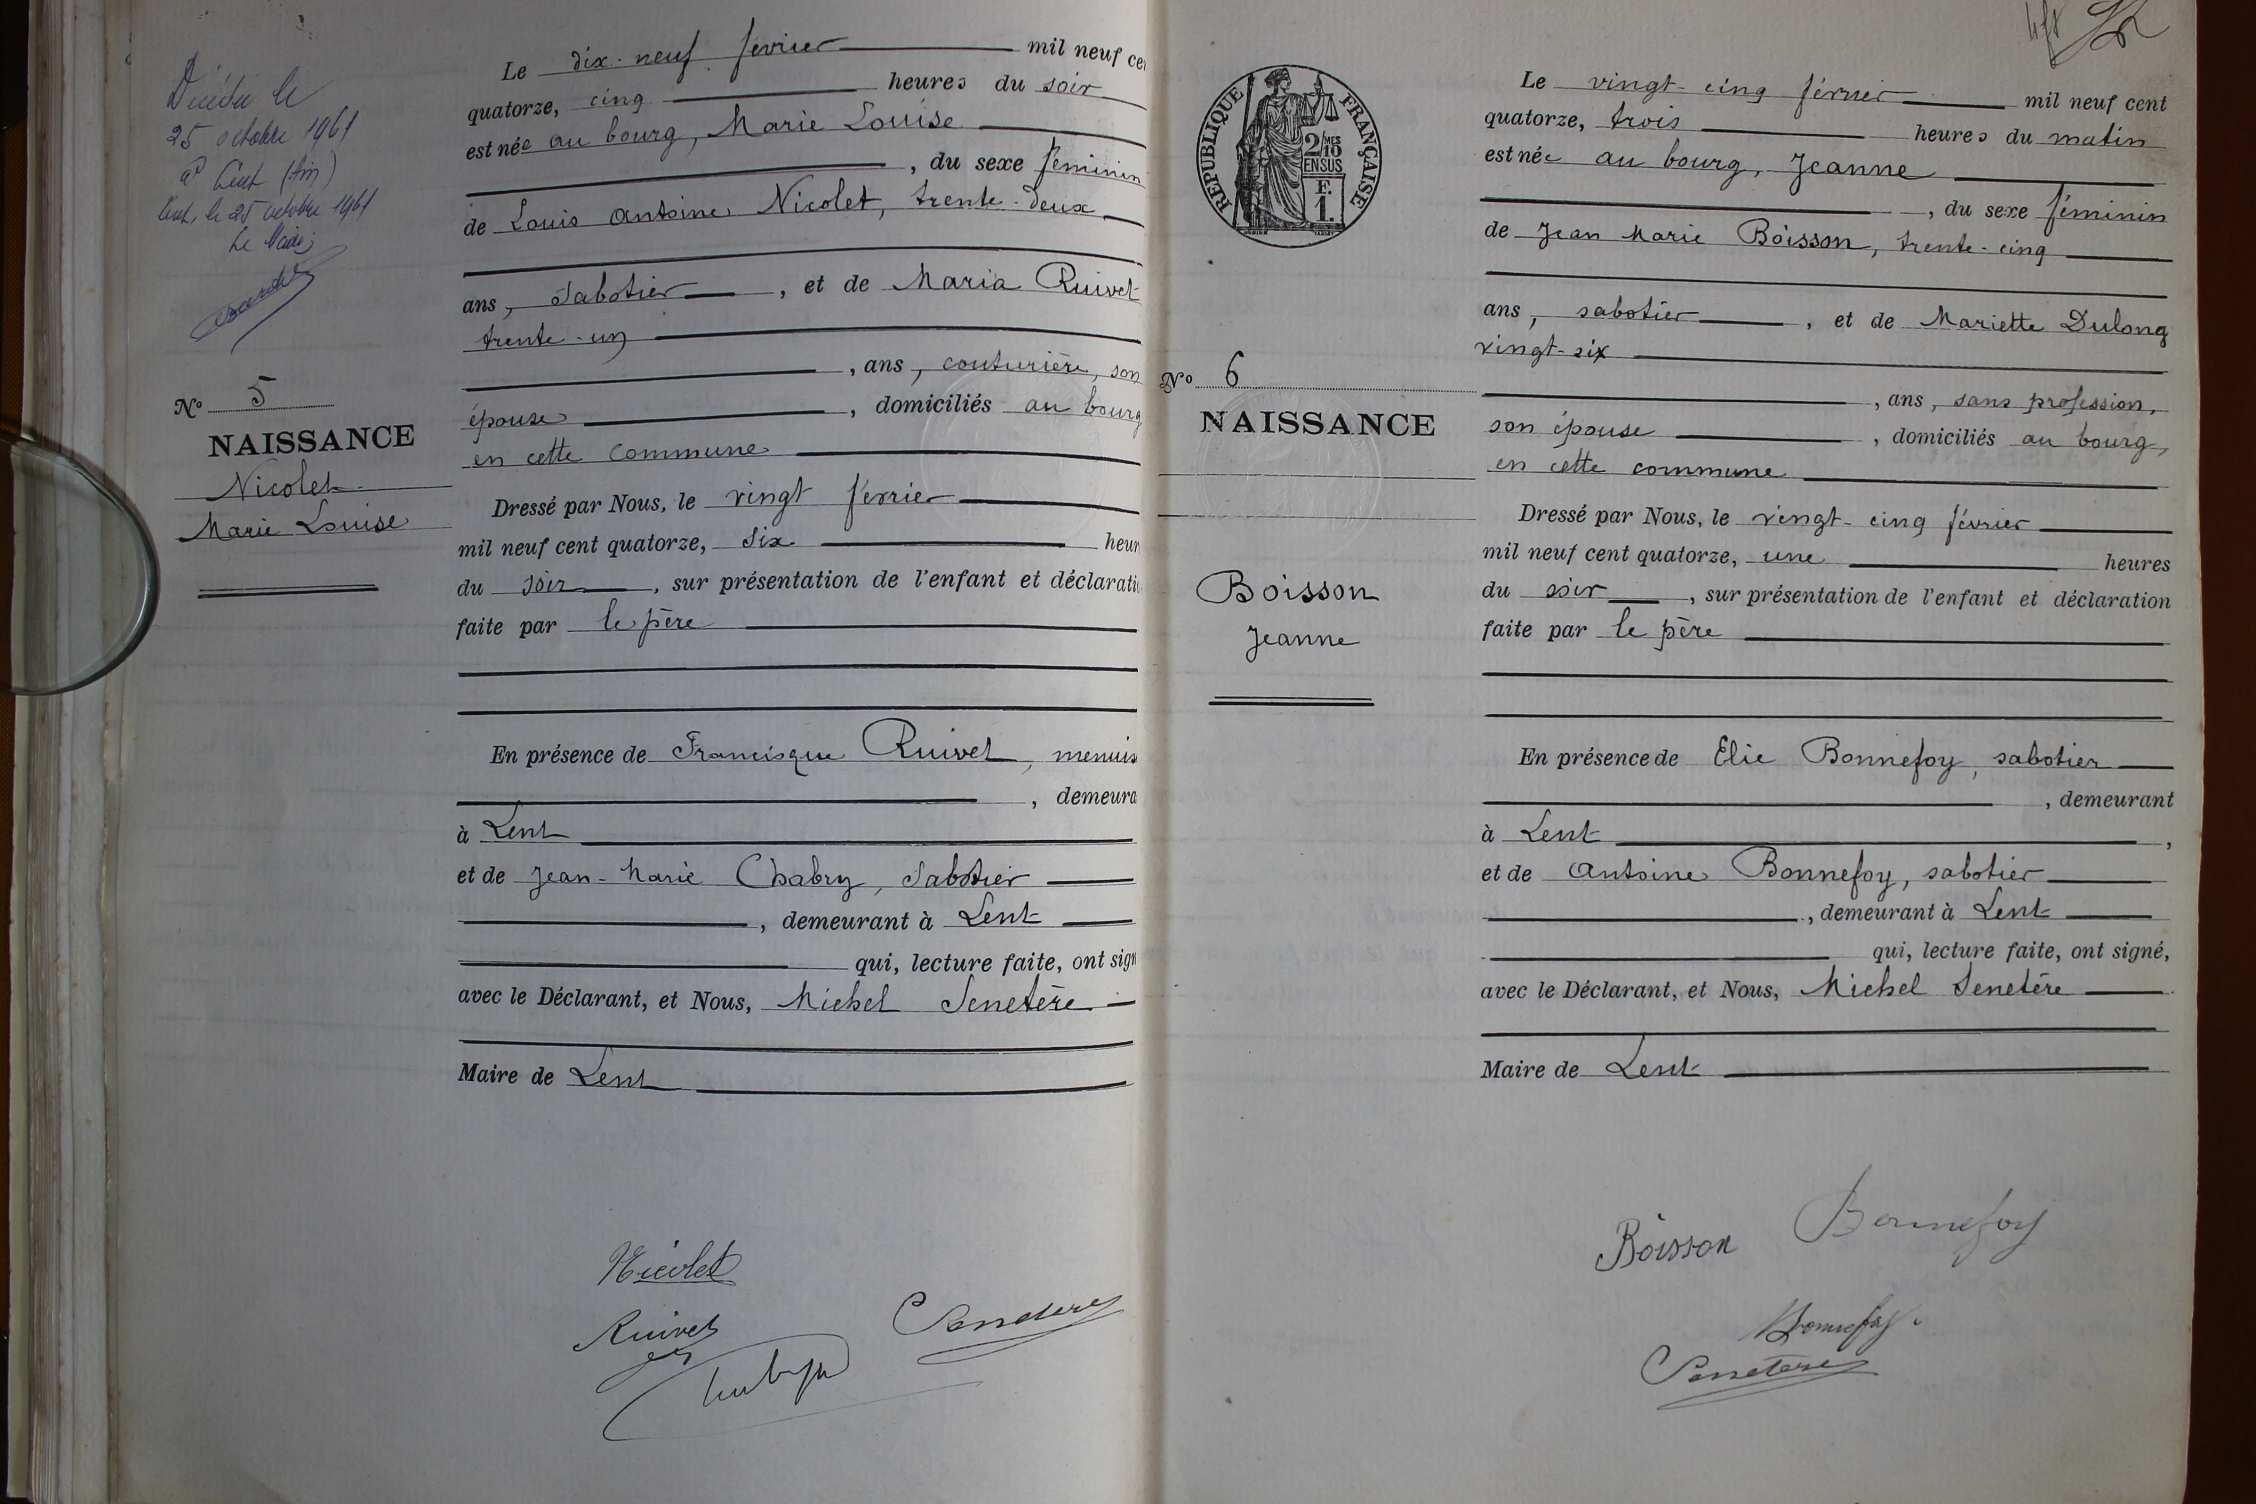 Décédée le
25 octobre 1961
à Lent (Ain)
Lent, le 25 octobre 1961
Le Maire
No 5
NAISSANCE
Nicolet
Marie Louise
Le dix-neuf février mil neuf cen
quatorze, cinq heures du soir
est née au bourg, Marie Louise
, du sexe féminin
de Louis Antoine Nicolet, trente-deux
ans, sabotier, et de Maria Ruivet
trente-un
, ans, couturière, son
épouse, domiciliés au bourg
en cette commune
Dressé par Nous, le vingt février
mil neuf cent quatorze, six heur
du soir, sur présentation de l'enfant et déclarati
faite par le père
En présence de Francisque Ruivet, menuis
, demeura
à Lent
et de Jean-Marie Chabry, sabotier
, demeurant à Lent
qui, lecture faite, ont sign
avec le Déclarant, et Nous, Michel Senetère
Maire de Lent
Nicolet
Ruivet
Senetère
RÉPUBLIQUE FRANÇAISE
2/10 MES
EN SUS
F.
1.
No 6
NAISSANCE
Boisson
Jeanne
Le vingt-cinq février mil neuf cent
quatorze, trois heures du matin
est née au bourg, Jeanne
, du sexe féminin
de Jean Marie Boisson, trente-cinq
ans, sabotier, et de Mariette Dulong
vingt-six
, ans, sans profession,
son épouse, domiciliés au bourg,
en cette commune
Dressé par Nous, le vingt-cinq février
mil neuf cent quatorze, une heures
du soir, sur présentation de l'enfant et déclaration
faite par le père
En présence de Elie Bonnefoy, sabotier
, demeurant
à Lent,
et de Antoine Bonnefoy, sabotier
, demeurant à Lent
qui, lecture faite, ont signé,
avec le Déclarant, et Nous, Michel Senetère
Maire de Lent
Boisson Bonnefoy
Bonnefoy
Senetère